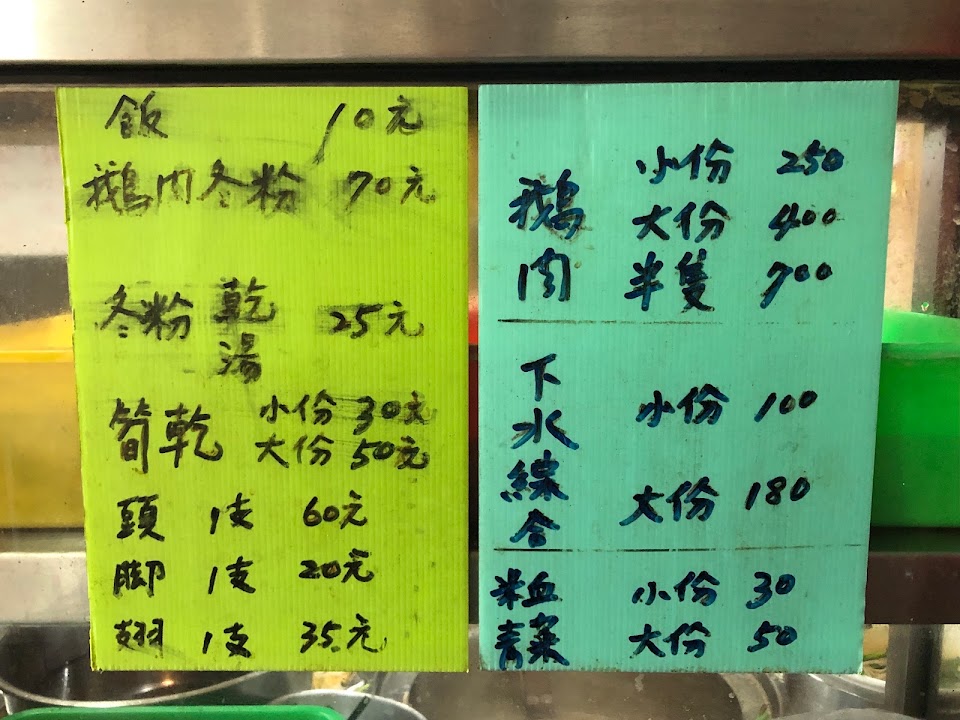 飯 10元
鵝肉冬粉 70元
冬粉 乾 湯 25元
筍乾 小份 30元
大份 50元
頭 1支 60元
脚 1支 20元
翅 1支 35元
鵝肉 小份 250
大份 400
半隻 700
下水綜合 小份 100
大份 180
米血 小份 30
青菜 大份 50